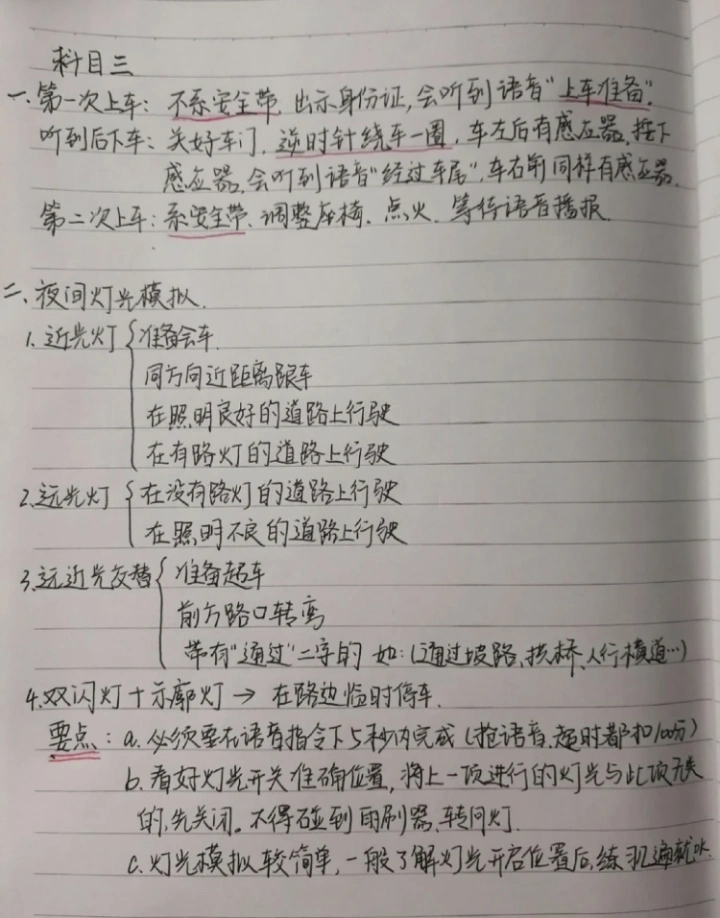 科目三
一、第一次上车：不系安全带，出示身份证，会听到语音“上车准备”.
听到后下车：关好车门，逆时针绕车一圈，车左后有感应器，按下
感应器，会听到语音“经过车尾”，车右前同样有感应器.
第二次上车：系安全带、调整座椅、点火、等待语音播报.
二、夜间灯光模拟.
1.近光灯{准备会车.
同方向近距离跟车
在照明良好的道路上行驶
在有路灯的道路上行驶
2.远光灯{在没有路灯的道路上行驶
在照明不良的道路上行驶
3.远近光交替{准备超车
前方路口转弯
带有“通过”二字的 如：(通过坡路、拱桥、人行横道…)
4.双闪灯+示廓灯→在路边临时停车.
要点：a.必须要在语音指令下5秒内完成(抢语音、超时都扣100分)
b.看好灯光开关准确位置，将上一项进行的灯光与此项无关
的，先关闭。不得碰到雨刷器、转向灯.
c.灯光模拟较简单，一般了解灯光开启位置后，练习几遍就OK.